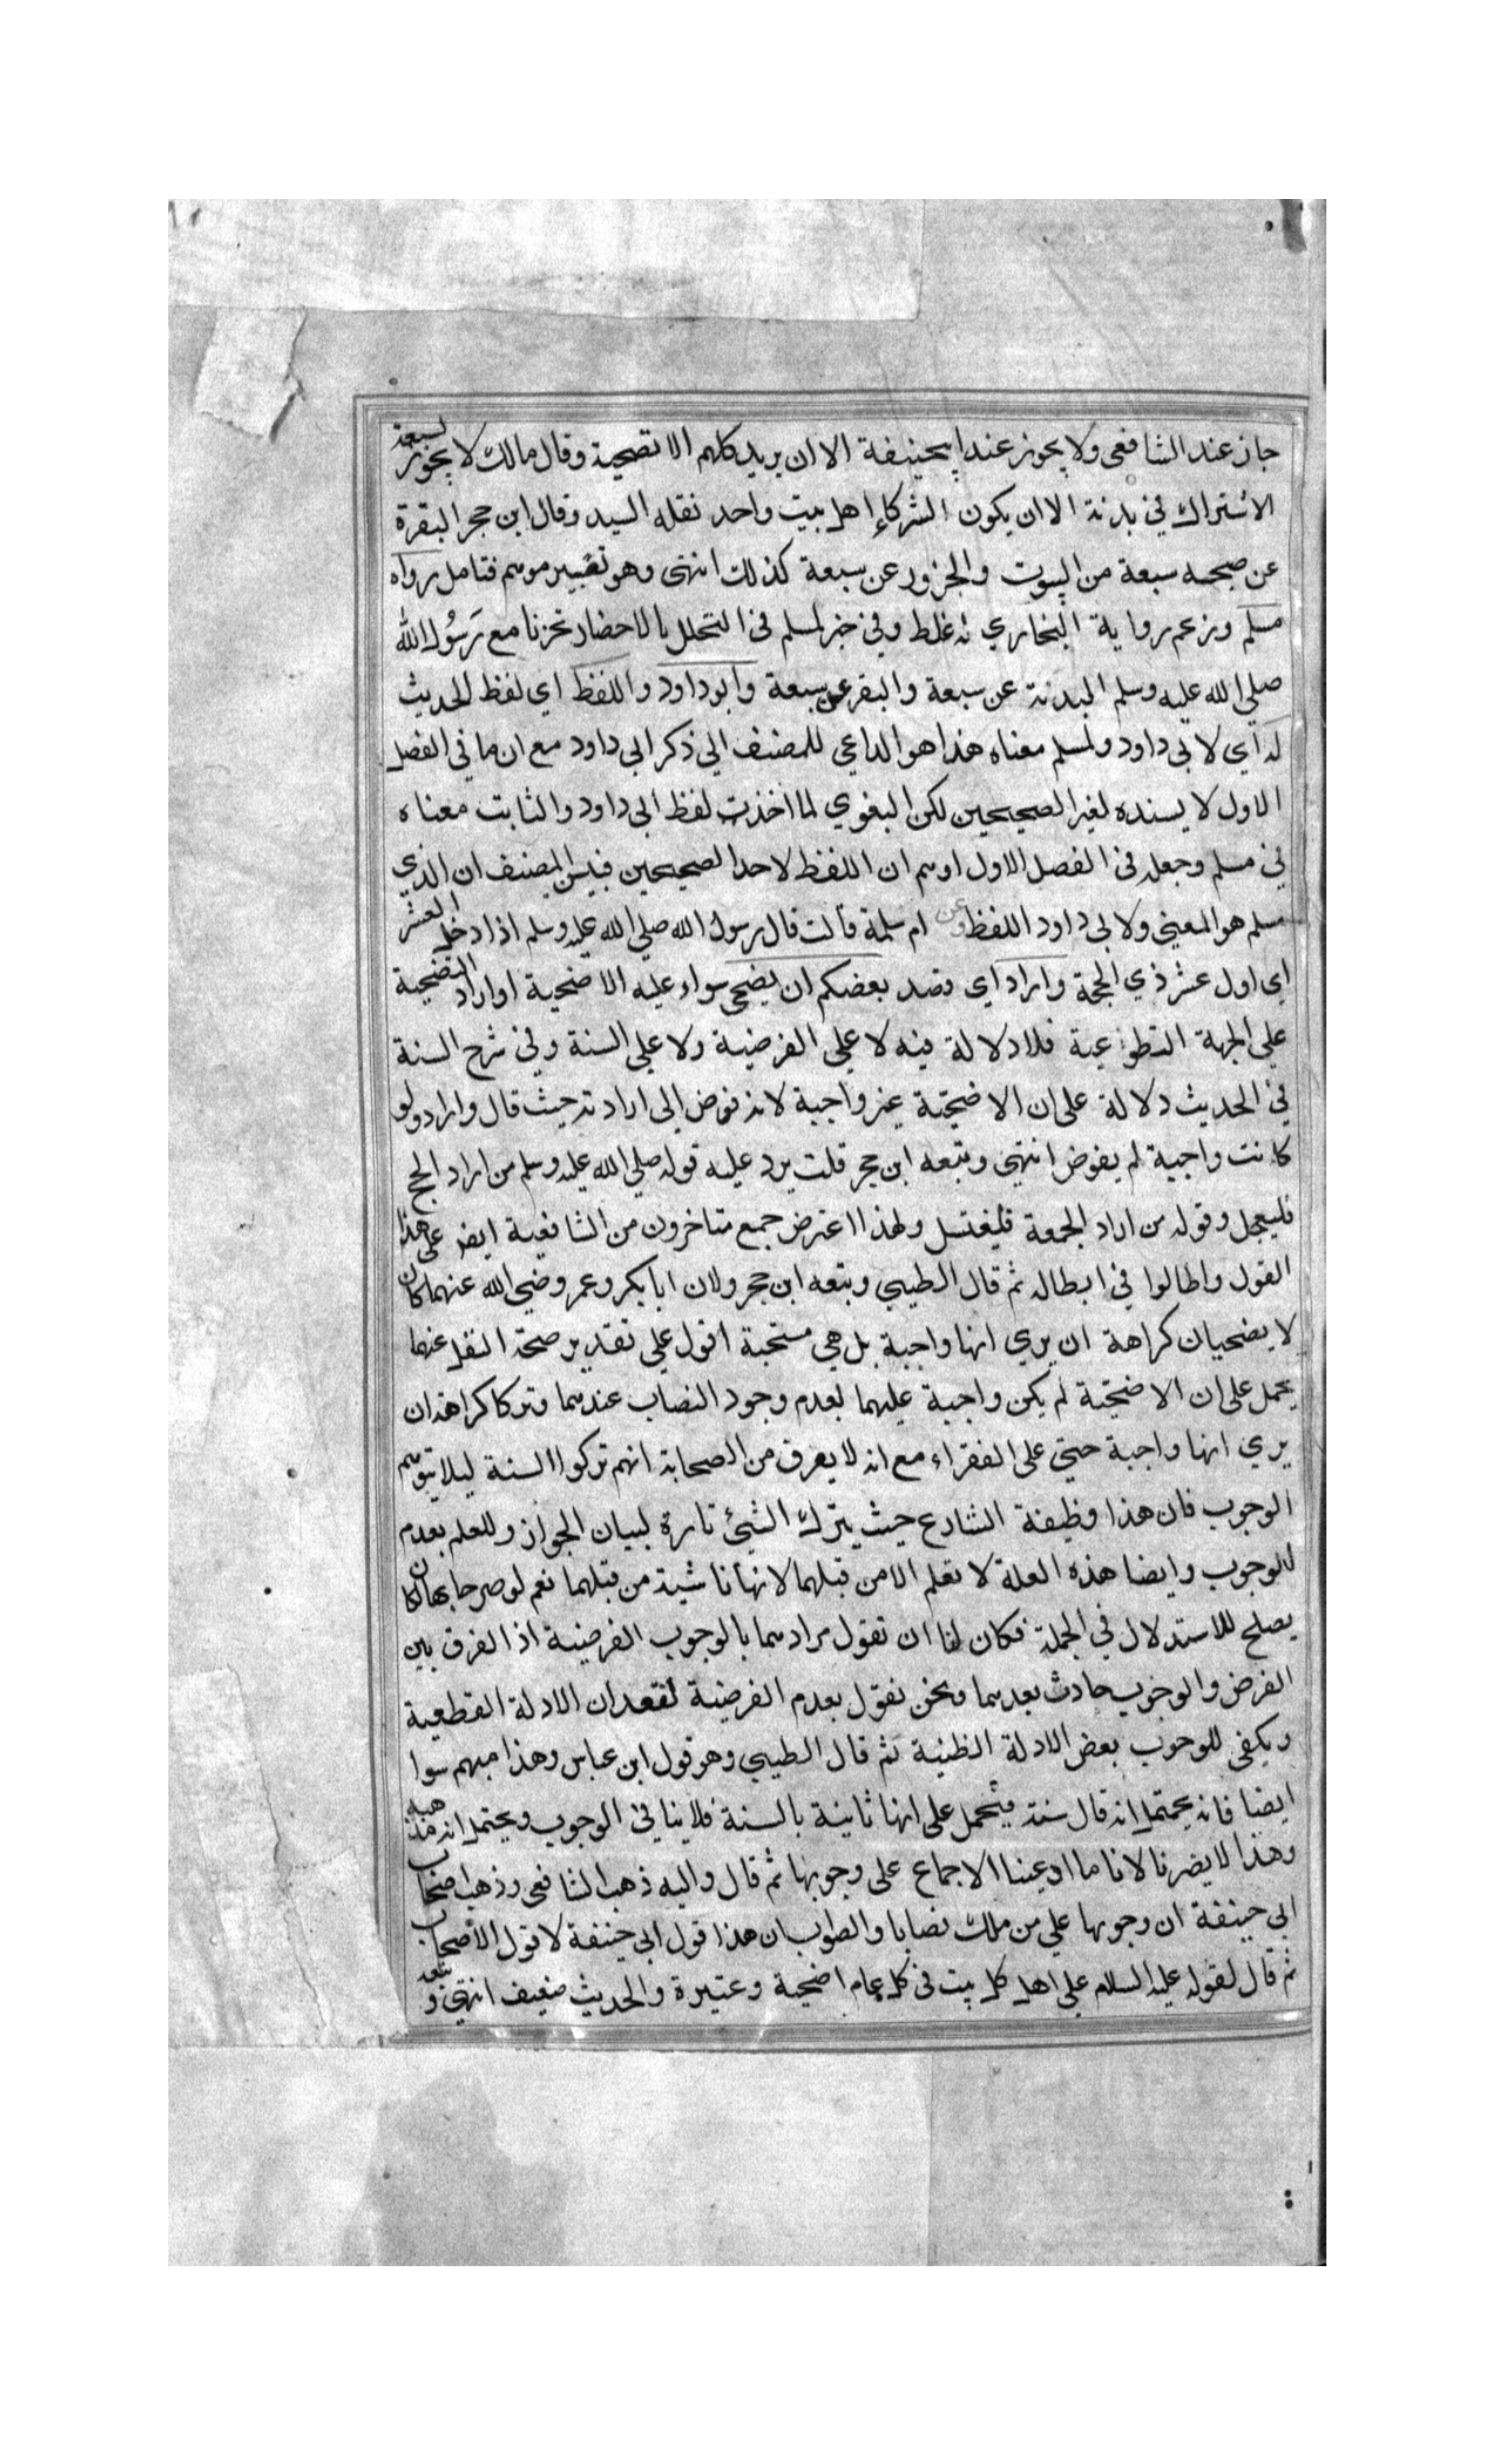 جاز عند الشافعي ولا يجوز عند ابيحنيفة الا ان يريد كلهم الاتضحية وقال مالك لا يجوز لسبعة
الاشتراك في بدنة الا ان يكون الشركاء اهل بيت واحد نقله السيد وقال ابن حجر البقرة
عن سبعة من البيوت والجزور عن سبعة كذلك انتهى وهو تغيير موهم فتامل رواه
مسلم وزعم رواية البخاري له غلط وفي خبر لمسلم في التحلل بالاحصار نحرنا مع رسول الله
صلي الله عليه وسلم البدنة عن سبعة والبقر عن سبعة وابو داود واللفظ اي لفظ الحديث
له اي لابي داود ولمسلم معناه هذا هو الداعي للمصنف الي ذكر ابي داود مع ان ما في الفصل
الاول لا يسنده لغير الصحيحين لكن البغوي لما اخذت لفظ ابي داود والثابت معناه
في مسلم وجعله في الفصل الاول اوهم ان اللفظ لاحد الصحيحين فبين المصنف ان الذي
مسلم هو المعني ولابي داود اللفظ وعن ام سلمة قالت قال رسول الله صلي الله عليه وسلم اذا دخل العشر
اي اول عشر ذي الحجة واراد اي قصد بعضكم ان يضحي سواء عليه الاضحية او اراد التضحية
علي الجهة التطوعية فلا دلالة فيه لا علي الفرضية ولا علي السنة وفي شرح السنة
في الحديث دلالة على ان الاضحية غير واجبة لانه فوض الى ارادته حيث قال واراد ولو
كانت واجبة لم يفوض انتهى وتبعه ابن حجر قلت يرد عليه قوله صلي الله عليه وسلم من اراد الحج
فليعجل وقوله من اراد الجمعة فليغتسل ولهذا اعترض جمع متاخرون من الشافعية ايضا على هذا
القول واطالوا في ابطاله ثم قال الطيبي وتبعه ابن حجر ولان ابا بكر وعمر رضي الله عنهما كان
لا يضحيان كراهة ان يري انها واجبة بل هي مستحبة اقول علي تقدير صحة النقل عنهما
يحمل على ان الاضحية لم يكن واجبة عليهما لعدم وجود النصاب عندهما وتركا كراهة ان
يري انها واجبة حتي على الفقراء مع انه لا يعرف من الصحابة انهم تركوا السنة ليلا يتوهم
الوجوب فان هذا وظيفة الشارع حيث يترك الشيئ تارة لبيان الجواز وللعلم بعدم
للوجوب وايضا هذه العلة لا تعلم الا من قبلهما لانها ناشية من قبلهما نعم لو صرحا بها لكان
يصلح للاستدلال في الجملة فكان لنا ان نقول مرادهما بالوجوب الفرضية اذ الفرق بين
الفرض والوجوب حادث بعدهما ونحن نقول بعدم الفرضية لفقدان الادلة القطعية
ويكفي للوجوب بعض الادلة الظنية ثم قال الطيبي وهو قول ابن عباس وهذا مبهم سوا
ايضا فانه يحتمل انه قال سنة فتحمل على انها ثانية بالسنة فلا ينافي الوجوب ويحتمل انه مذهبه
وهذا لا يضرنا لانا ما ادعينا الاجماع على وجوبها ثم قال واليه ذهب الشافعي وذهب اصحاب
ابي حنيفة ان وجوبها علي من ملك نصابا والصواب ان هذا قول ابي حنيفة لا قول الاصحاب
ثم قال لقوله عليه السلام علي اهل كل بيت في كل عام اضحية وعتيرة والحديث ضعيف انتهى وتبعه